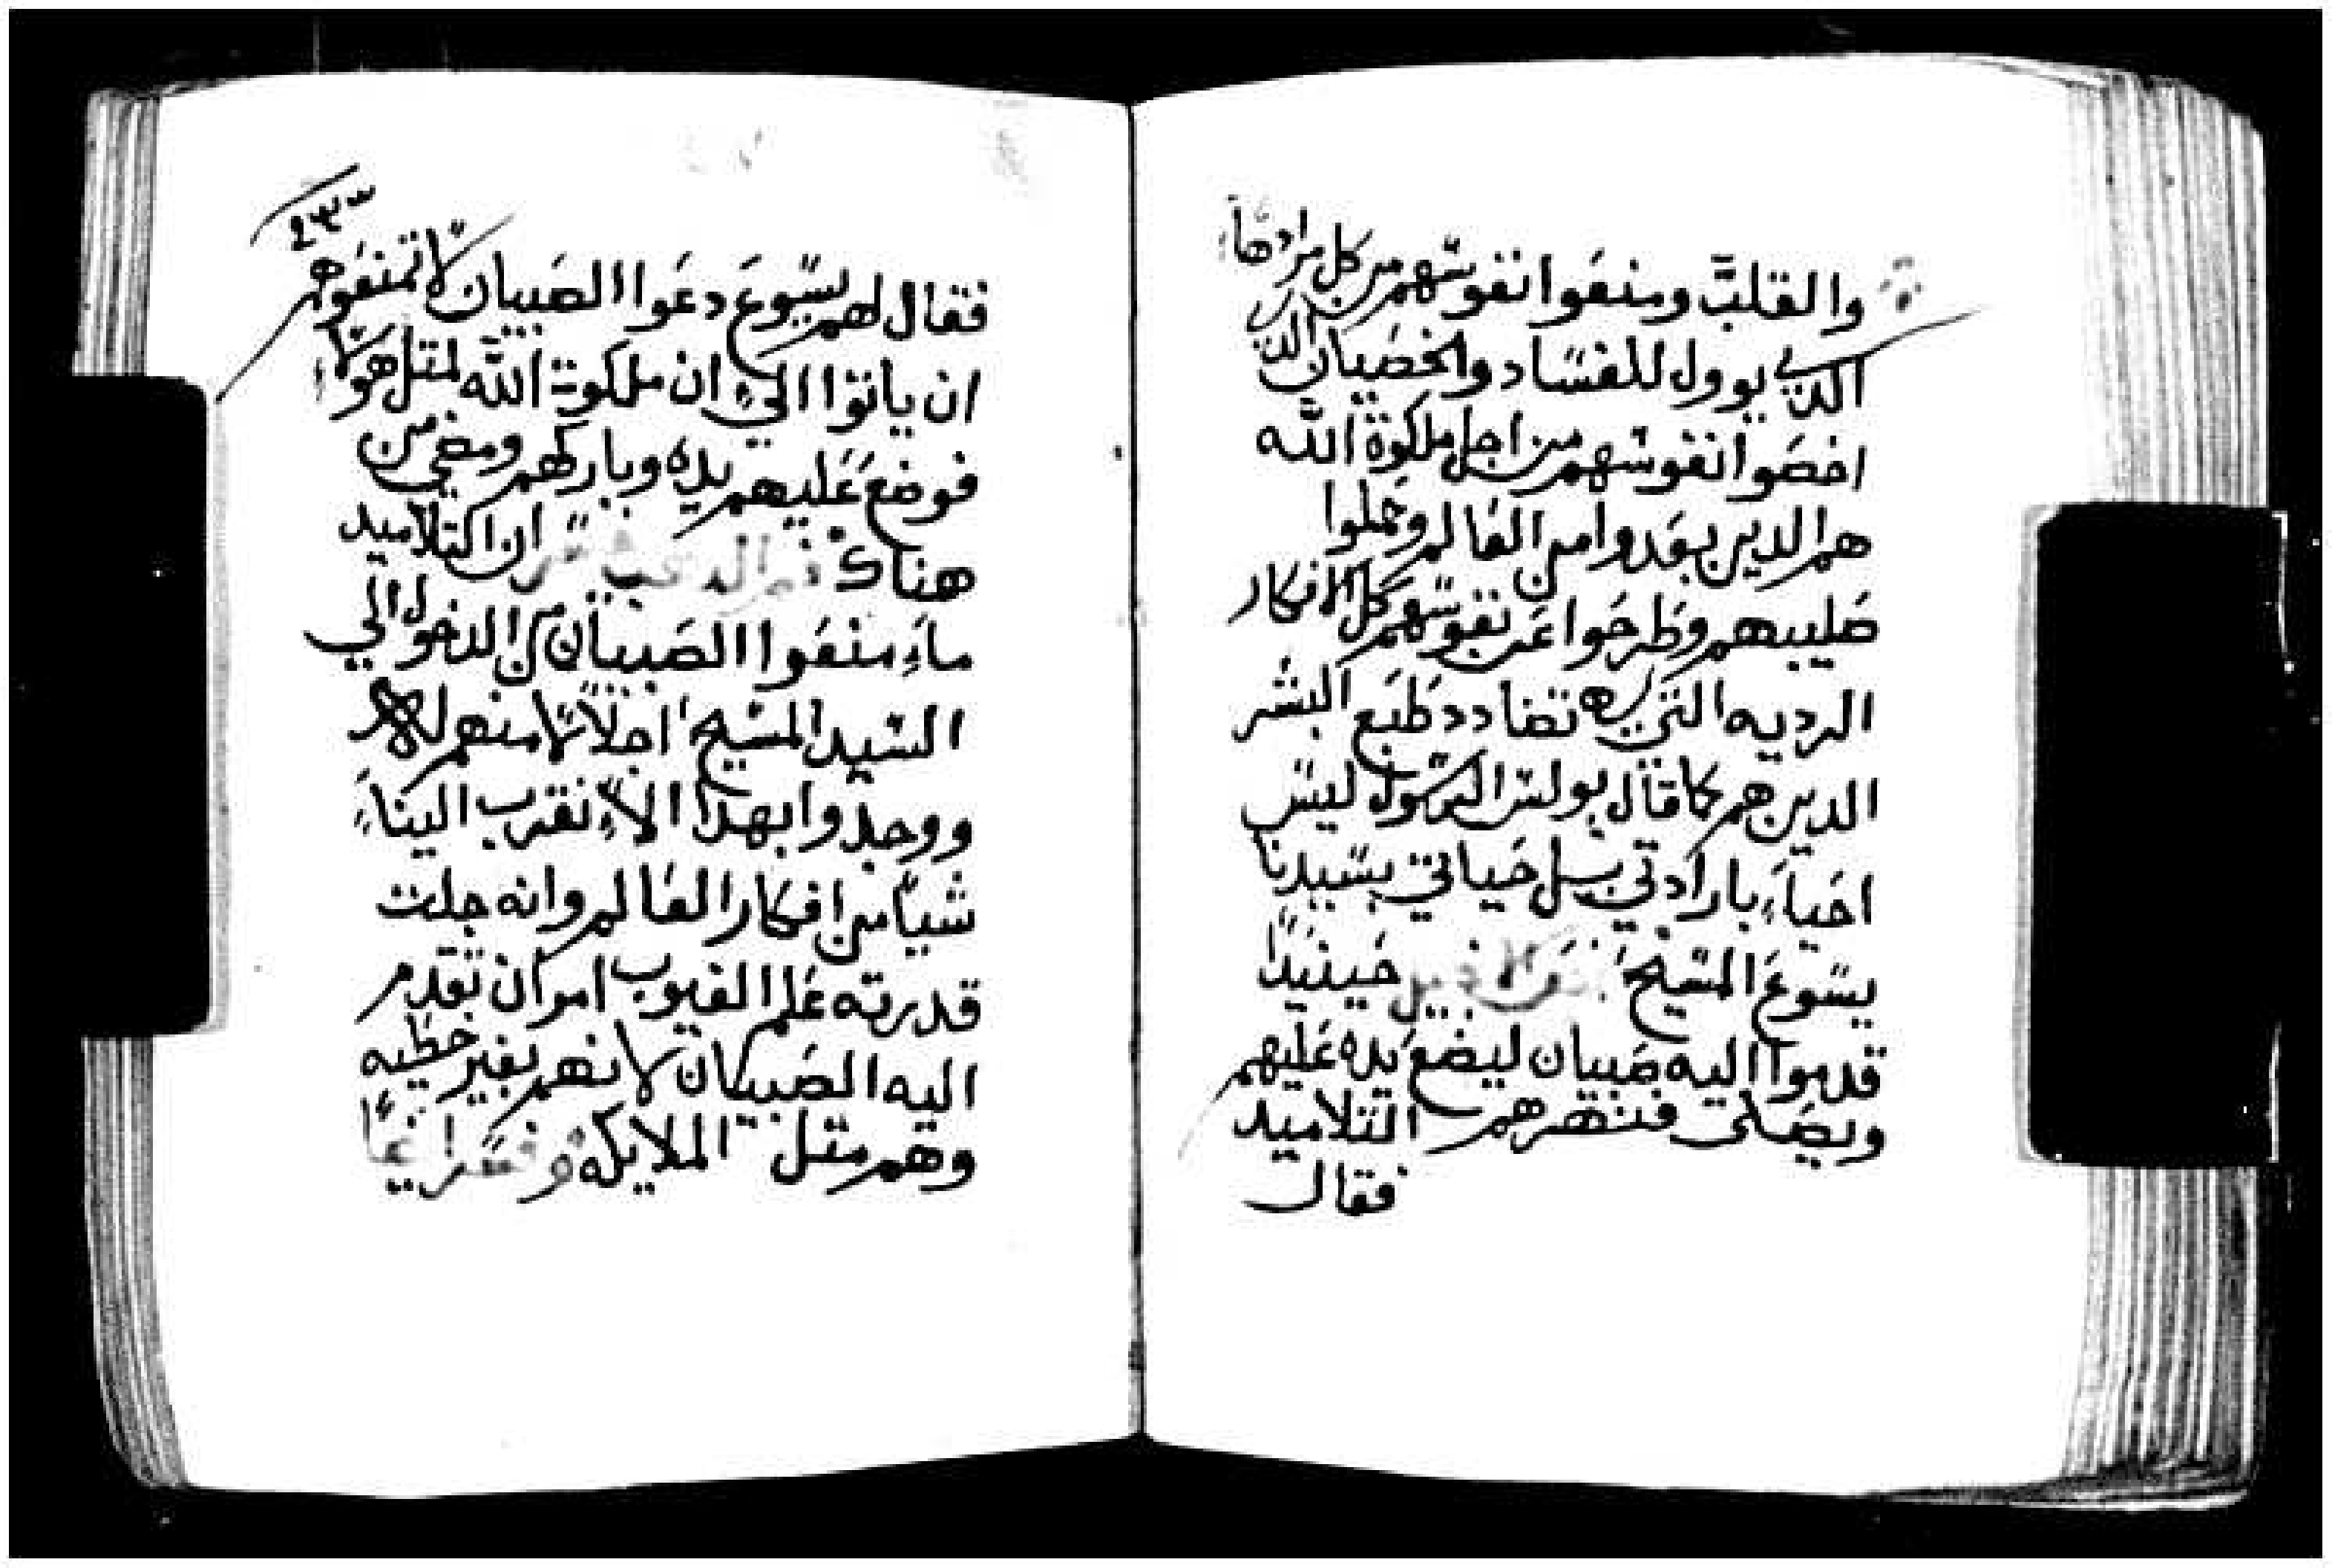 والقلب ومنعوا نفوسهم من كل مرادها
الدي يوول للفساد والخصيان الدين
اخصوا نفوسهم من اجل ملكوة الله
هم الدين بعدوا من العالم وحملوا
صليبهم وطرحوا عن نفوسهم كل الافكار
الرديه التي تضادد طبع البشر
الدين هم كما قال بولس الرسول ليس
احيا بارادتي بل حياتي بسيدنا
يسوع المسيح حينيدا
قدموا اليه صبيان ليضع يده عليهم
ويصلى فنهرهم التلاميد
فقال
٢٣٣
فقال لهم يسوع دعوا الصبيان لا تمنعوهم
ان ياتوا الي ان ملكوت الله لمتل هولا
فوضع عليهم يده وباركهم ومضي من
هناك ان التلاميد
ما منعوا الصبيان من الدخول الي
السيد المسيح اجلالا منهم له
ووجدوا بهدا الا نقرب الينا
شيا من افكار العالم وانه جلت
قدرته علم الغيوب امر ان تقدم
اليه الصبيان لانهم بغير خطيه
وهم متل الملايكه